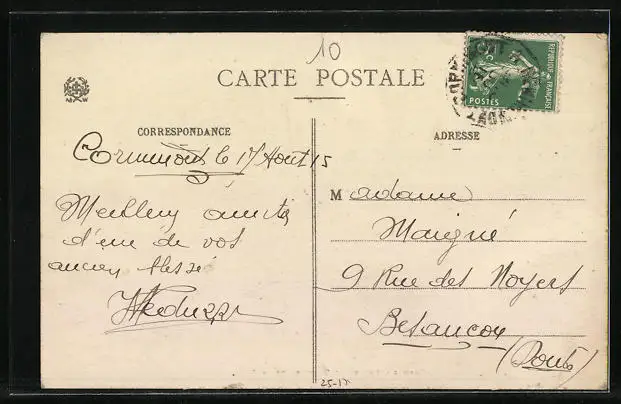 10
CARTE POSTALE
RÉPUBLIQUE FRANÇAISE
POSTES
CORRESPONDANCE
ADRESSE
Cornimont le 17 Août 15
Meilleurs amitiés
d'un de vos
ancien blessé
Madame
Maigné
9 Rue des Noyers
Besançon
(Doubs)
25-17